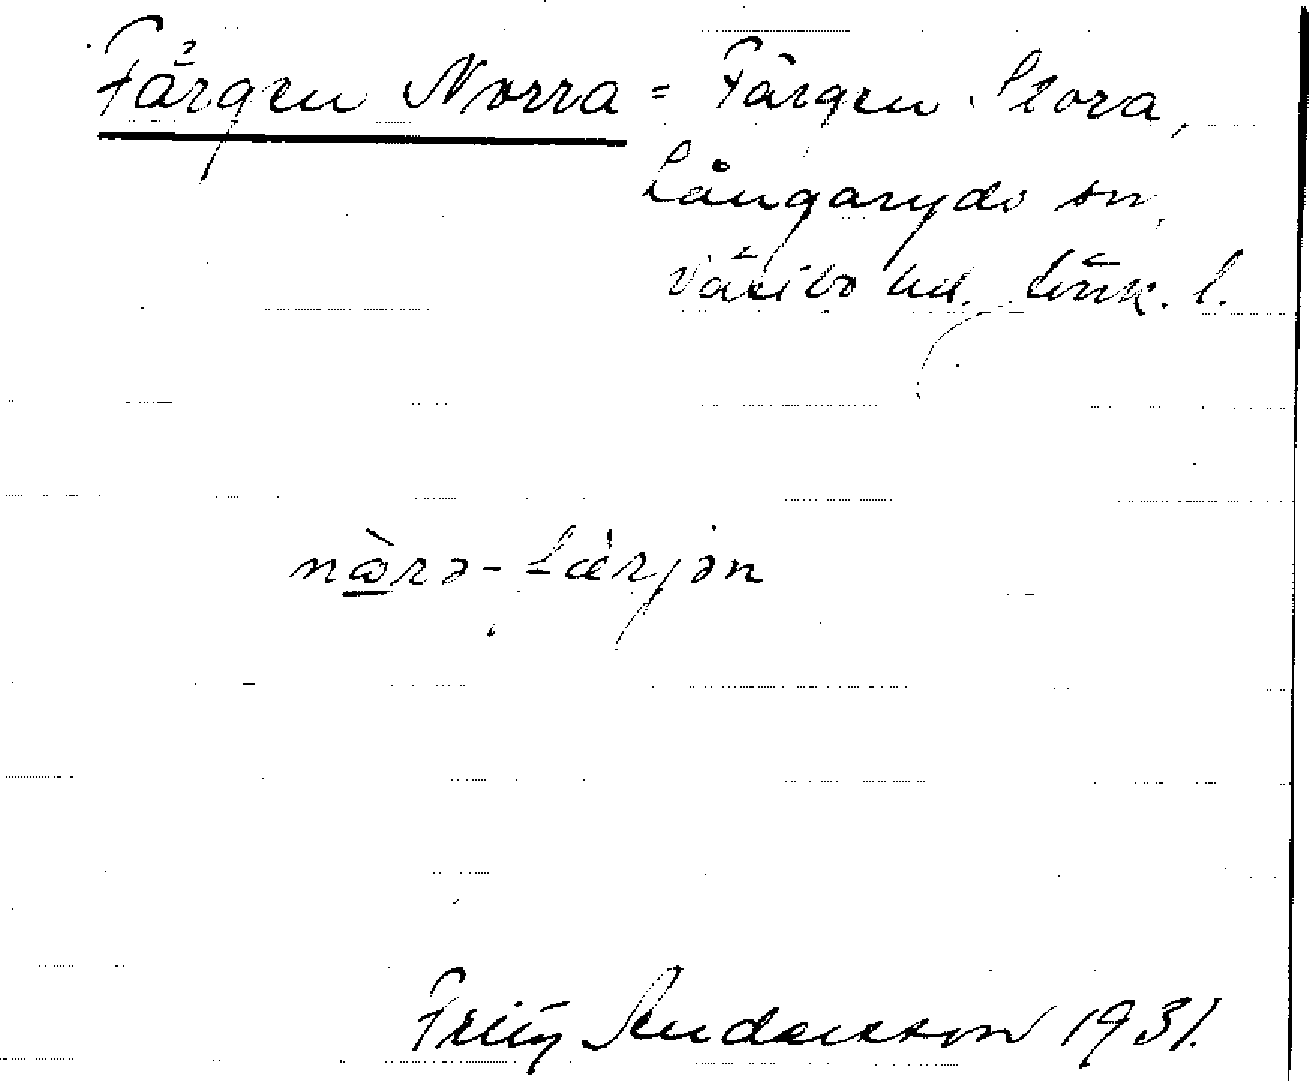 Färgen Norra = Färgen Stora,
Långaryds sn,
Västbo hd. Jönk. l.
nàrə-färjən
Fritz Andersson 1931.